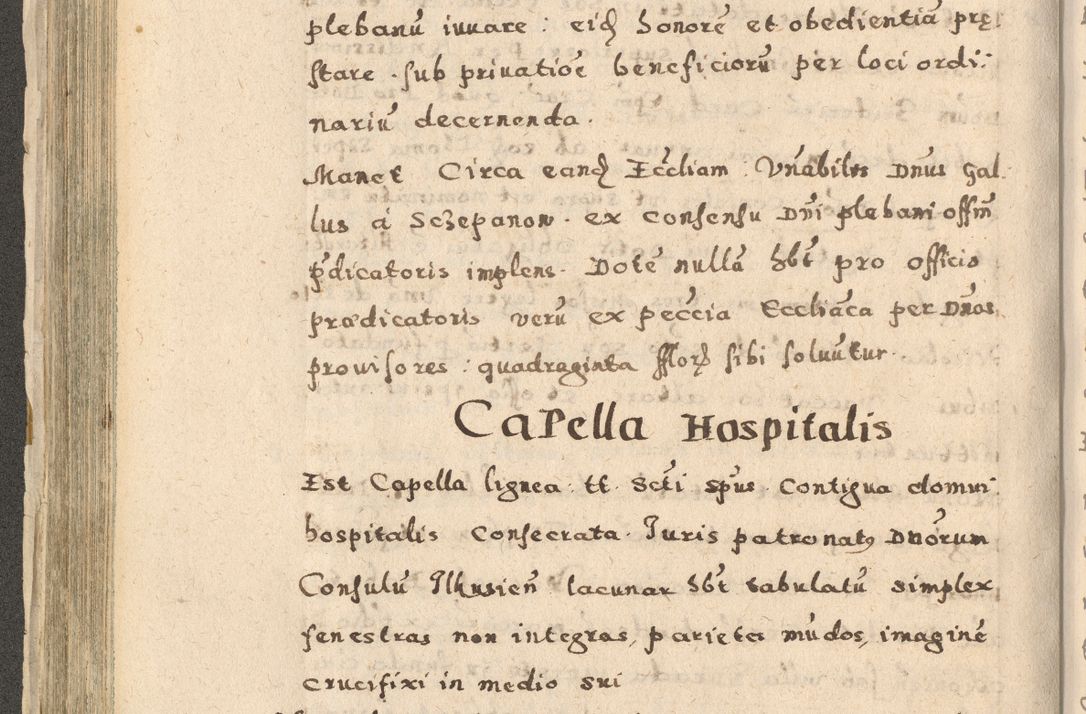 plebanū iuuare : eidȝ honorē et obedientiā prę:
stare . sub priuatiōe beneficiorū per loci ordi:
nariū decernenda .
Manet Circa eandȝ Ecc̄liam . Vn̄abiles Dn̄us Gal
lus á Sczepanow . ex consensu Dn̄i plebani offm̄
p̄dicatoris implens . Dotē nullā hb̄t pro officio
prædicatoris verū ex peccia Eccliāca per Dn̄os
prouisores : quadraginta fflorȝ sibi soluūtur .
Capella Hospitalis
Est Capella lignea tt Sc̄ti Sp̄us Contigua domui
hospitalis Consecrata . Iuris patronatꝯ Dnōrum
Consulū Ilkusien̄ lacunar hb̄t tabulatū simplex
fenestras non integras, parietes mūdos, imaginē
Crucifixi in medio sui